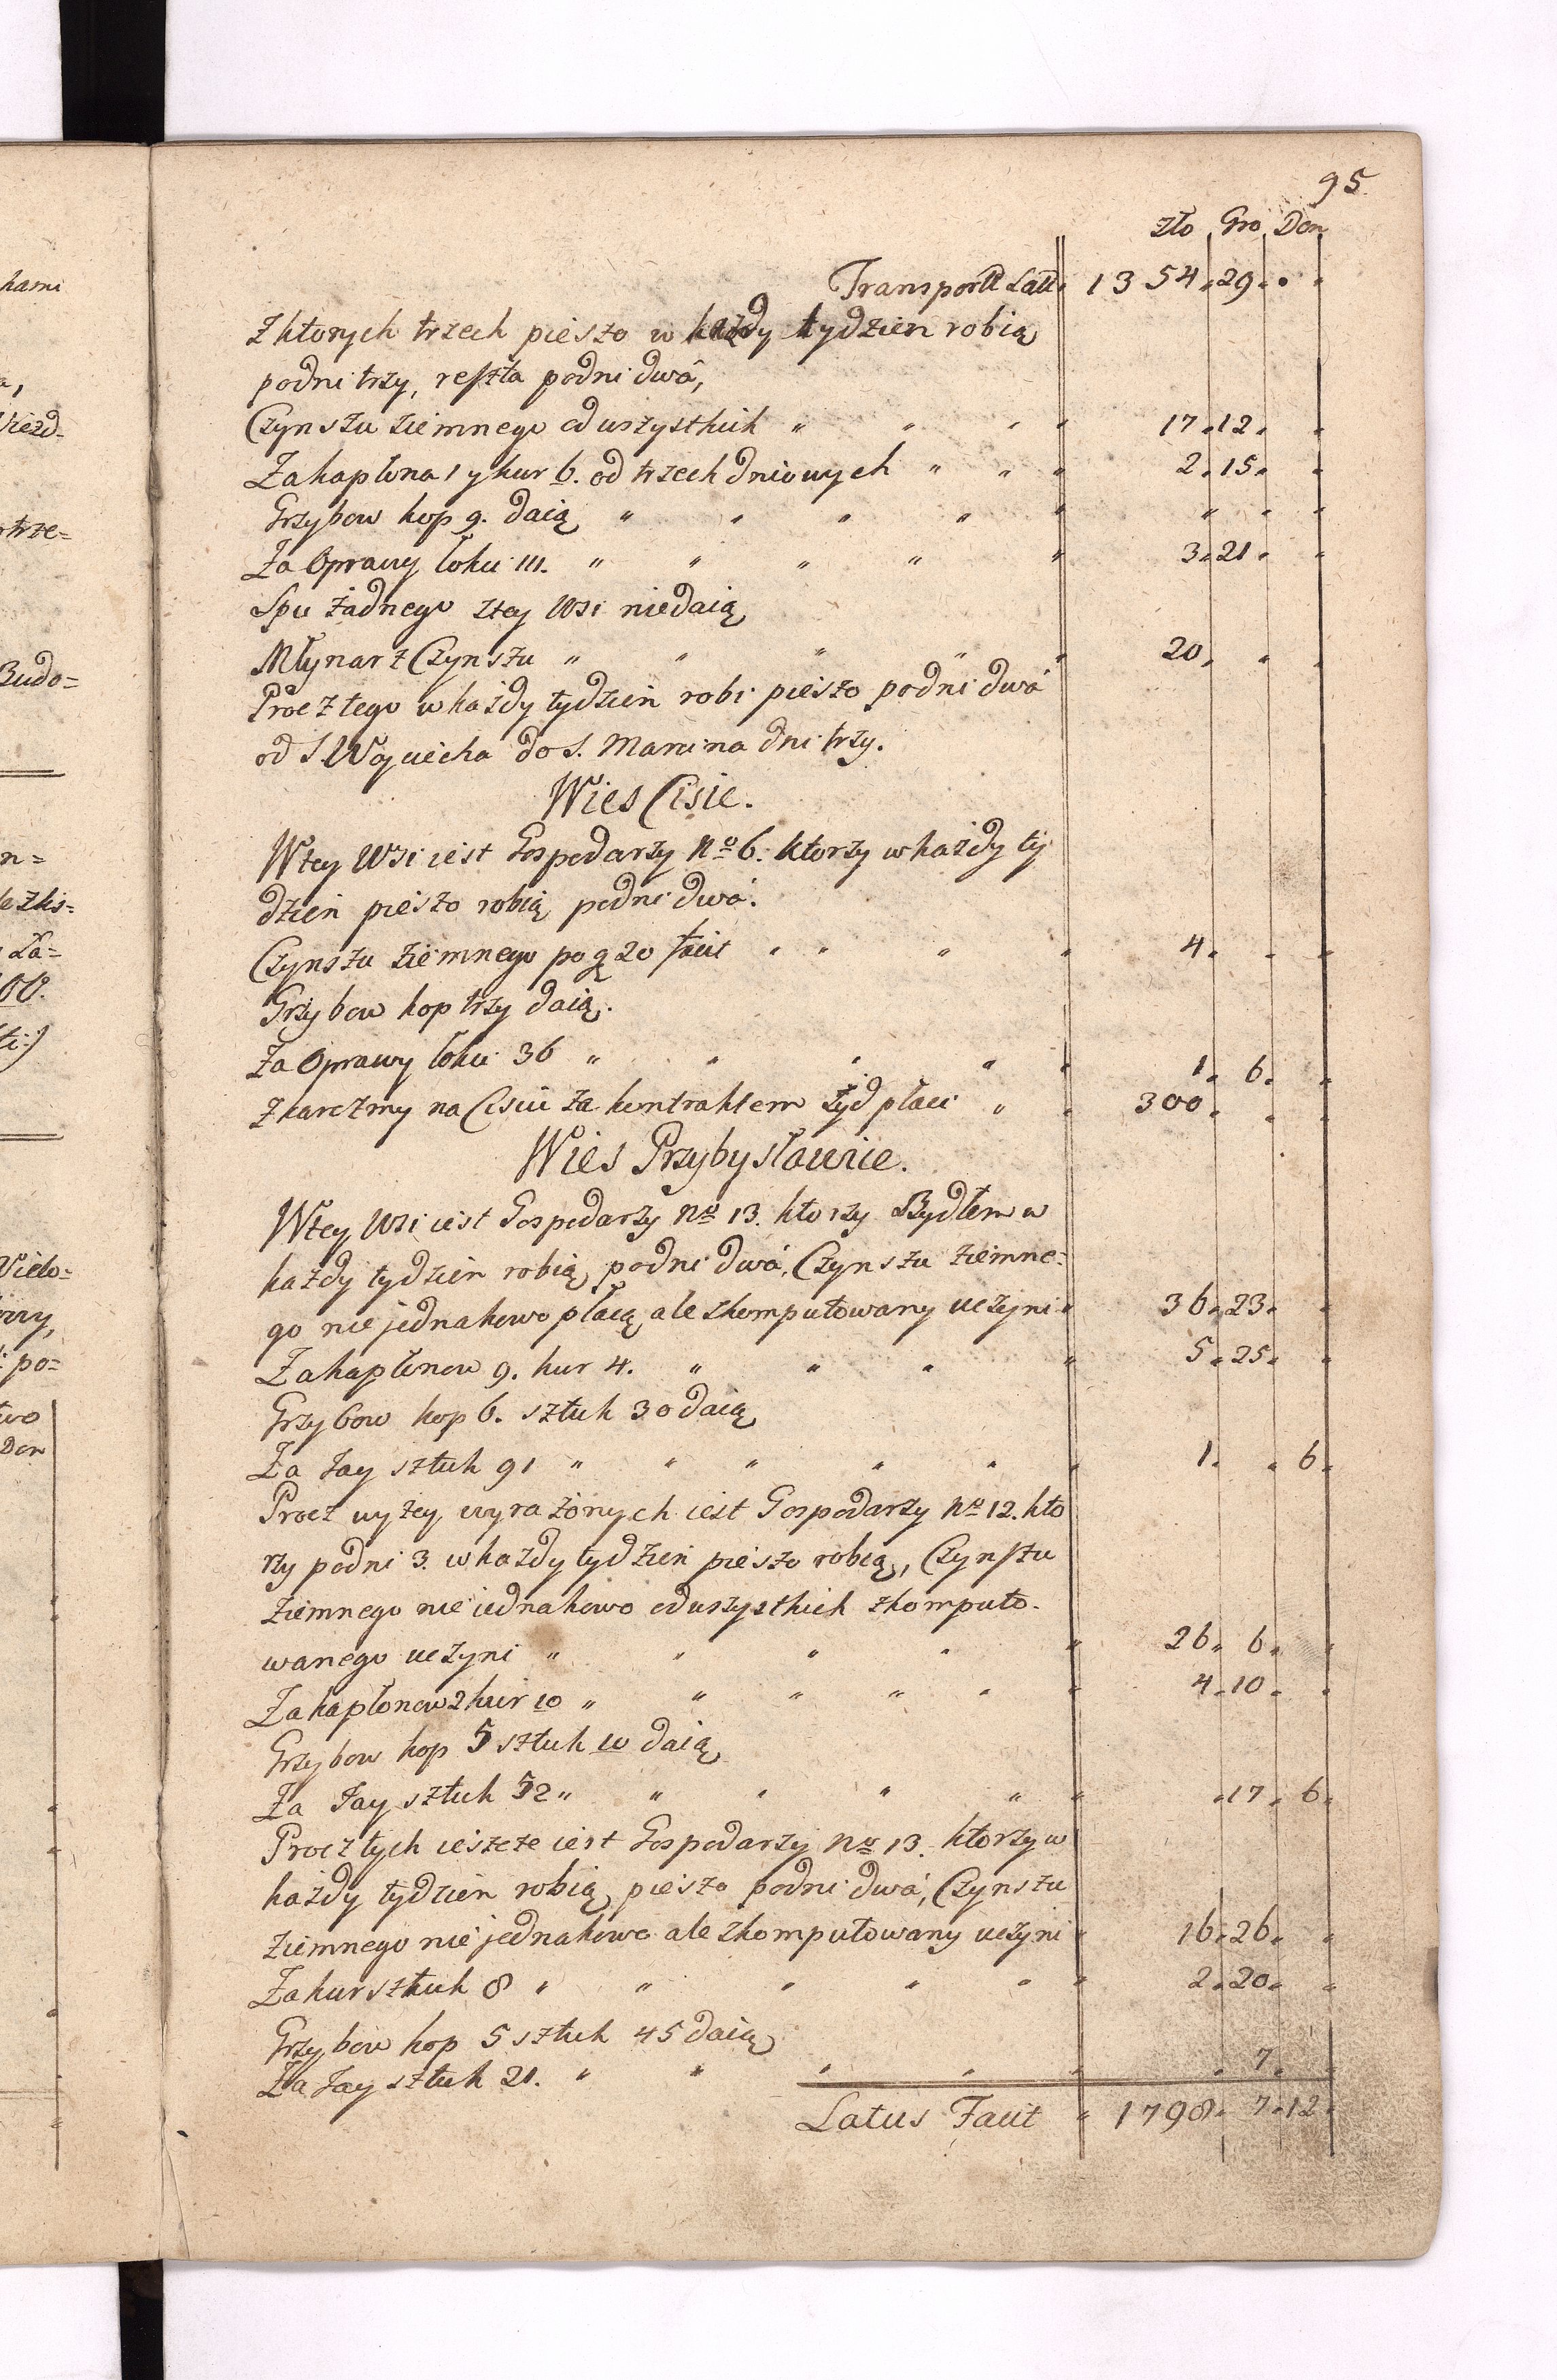 95
Zło Gro Den
Transportt Latt 1354 29
Z ktorych trzech pieszo w każdy tydzien robią
podni trzy, reszta podni dwa,
Czynszu ziemnego od wszystkich " " " " 17 12
Za kapłona 1 y kur 6. od trzech dniowych " " " 2 15
Grzybow kop 9. daią " " " " "
Za Oprawy łokci 111. " " " " " 3 21
Spu żadnego z tey Wsi niedaią
Młynarz Czynszu " " " " " 20
Procz tego w każdy tydzień robi pieszo podni dwa
od S Woyciecha do S. Marcina dni trzy.
Wies Cisie.
W tey Wsi iest Gospodarzy No 6. ktorzy w każdy ty
dzień pieszo robią podni dwa.
Czynszu ziemnego po g 20 facit " " " " 4
Grzybow kop trzy daią.
Za Oprawy łokci 36 " " " " " 1 6
Z karczmy na Cisiu za kontraktem żyd płaci " " 300
Wies Przybysławice.
W tey Wsi iest Gospodarzy No 13. ktorzy Bydłem w
każdy tydzien robią podni dwa, Czynszu ziemne=
go nie jednakowo płacą ale zkomputowany uczyni " 36 23
Za kapłonow 9. kur 4. " " " " 5 25
Grzybow kop 6. sztuk 30 daią
Za Jay sztuk 91 " " " " " " 1 6
Procz wyżey wyrażonych iest Gospodarzy No 12. kto
rzy podni 3. w każdy tydzień pieszo robią, Czynszu
ziemnego nie iednakowo od wszystkich zkomputo-
wanego uczyni " " " " " 26 6
Za kapłonow 2 kur 10 " " " " " " 4 10
Grzybow kop 5 sztuk 10 daią
Za Jay sztuk 52 " " " " " " 17 6
Procz tych ieszcze iest Gospodarzy No 13. ktorzy w
każdy tydzien robią pieszo podni dwa, Czynszu
ziemnego nie jednakowo ale zkomputowany uczyni " 16 26
Za kur sztuk 8 " " " " " " 2 20
Grzybow kop 5 sztuk 45 daią
Za Jay sztuk 21. " " " " " 7
Latus Facit " 1798 7 12